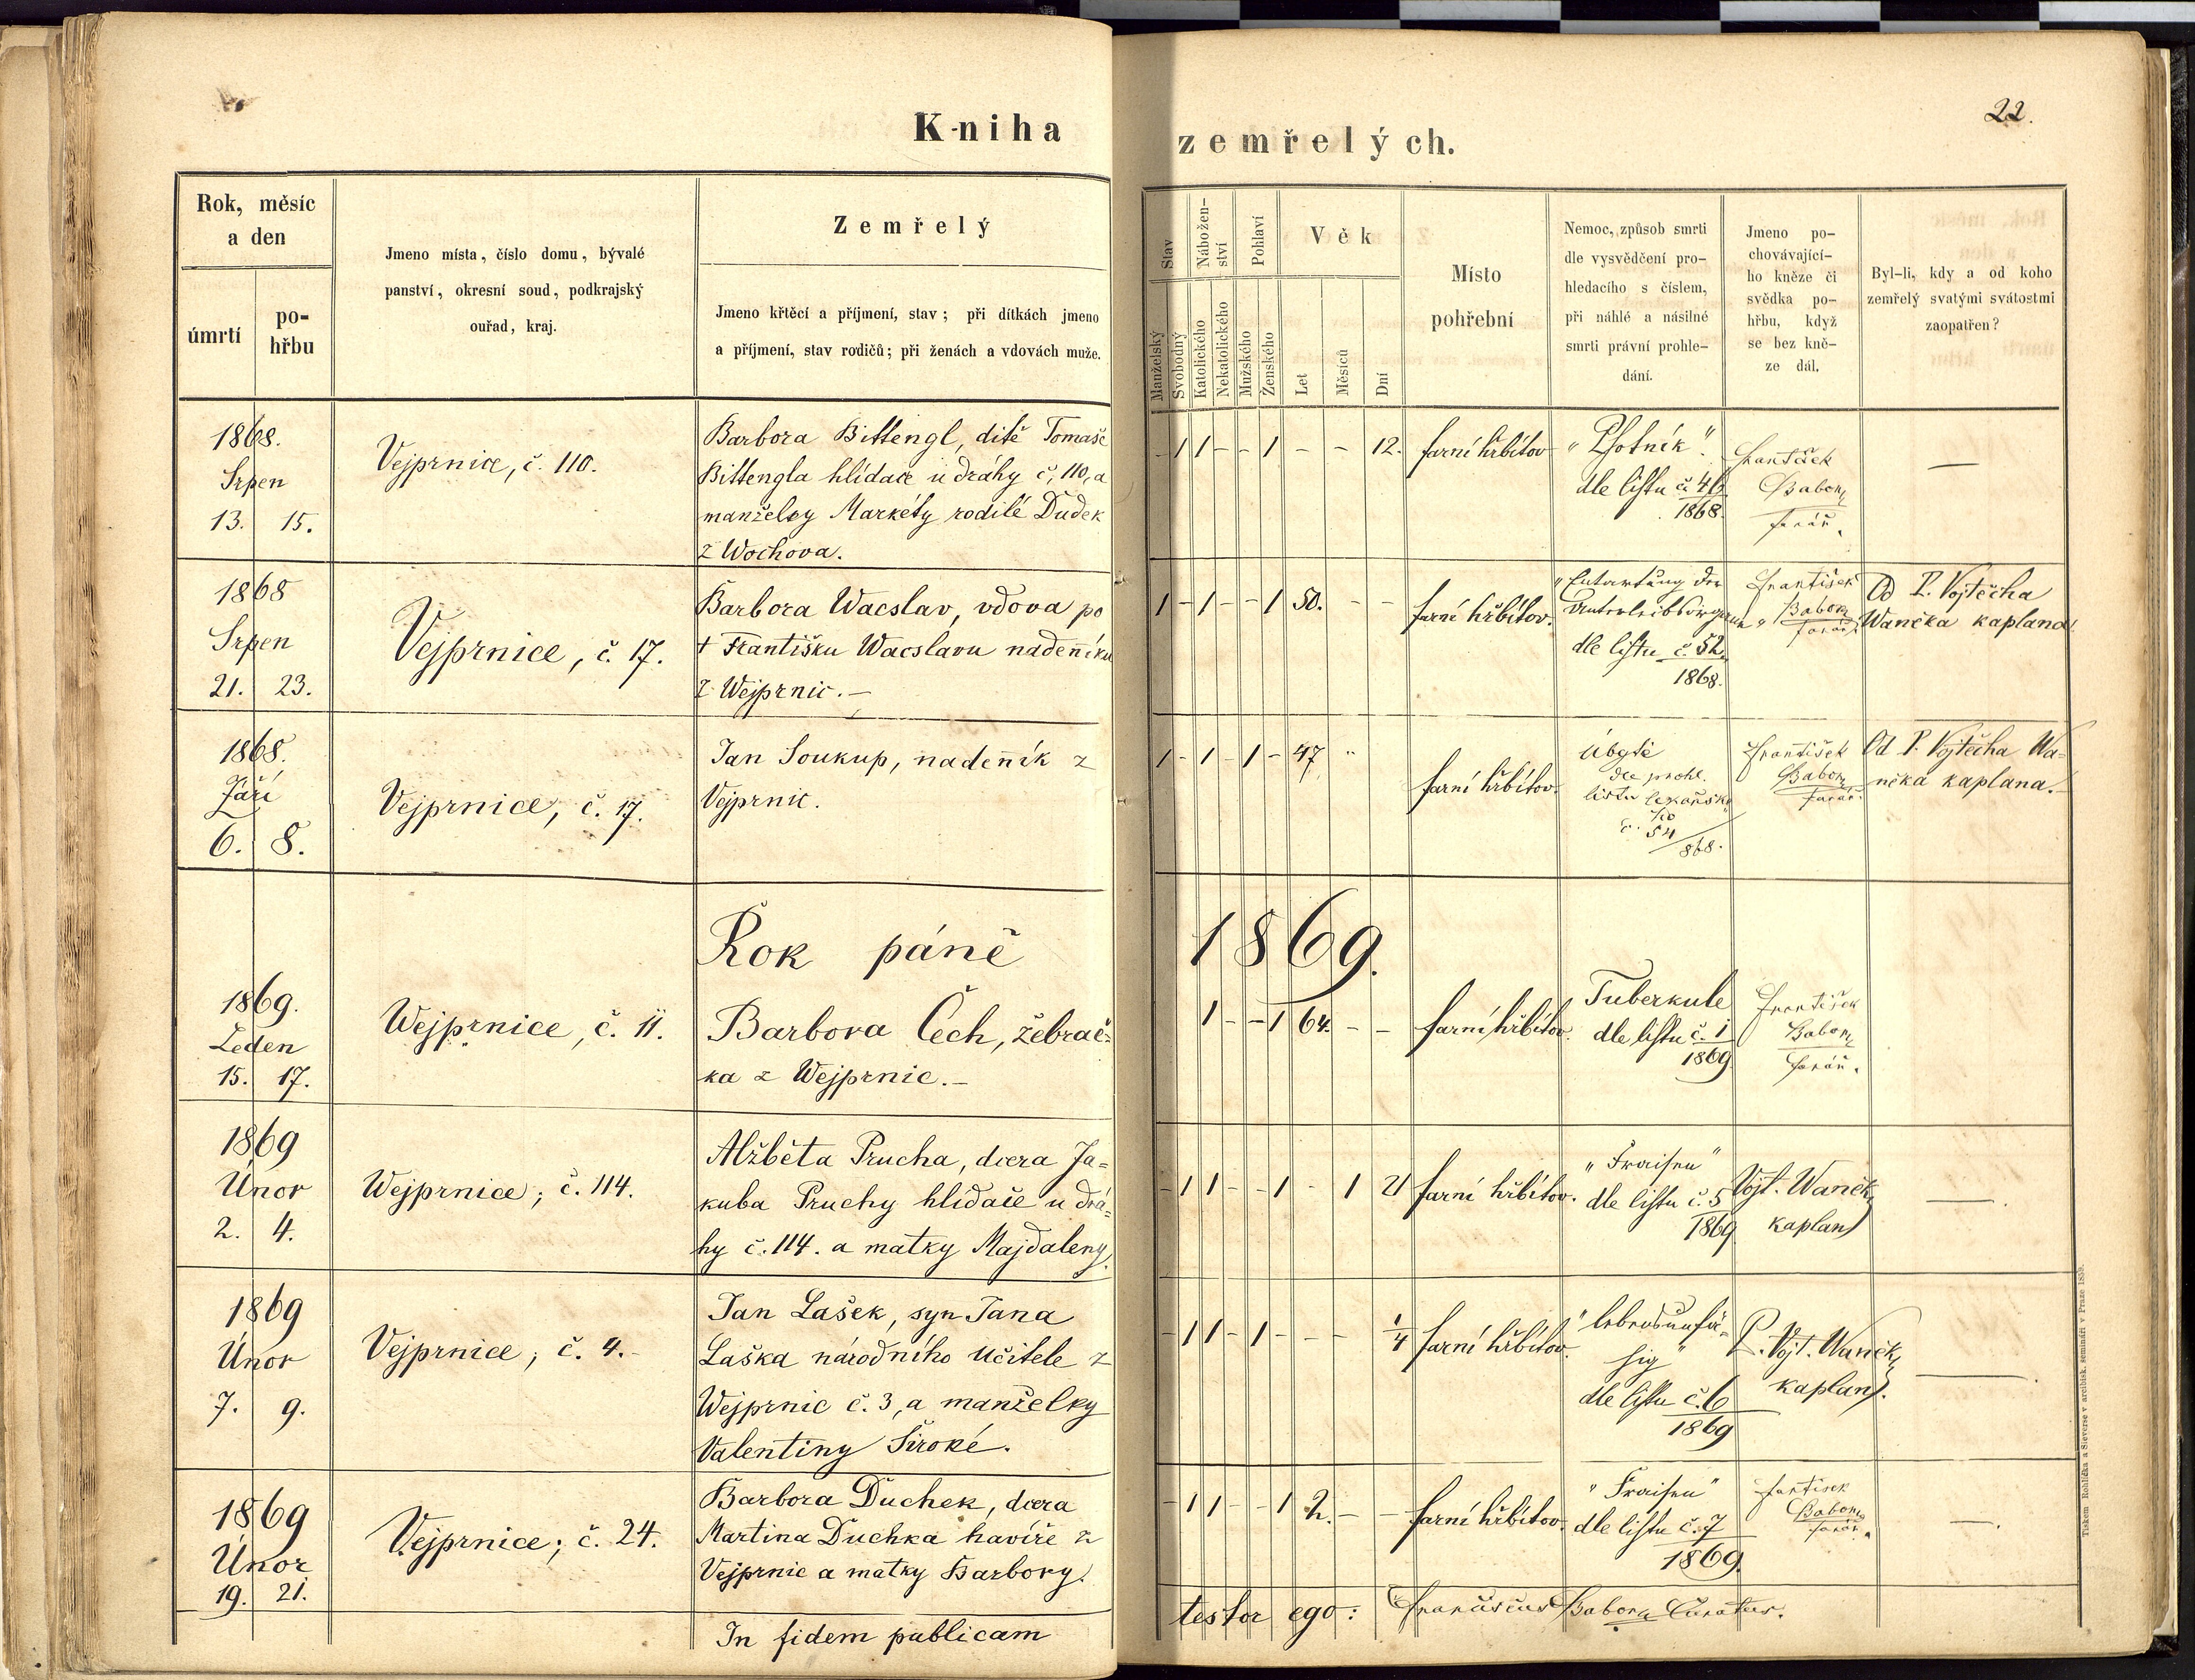 22.
Kniha zemřelých.
Rok, měsíc
a den
úmrtí
po-
hřbu
Jmeno místa, číslo domu, bývalé
panství, okresní soud, podkrajský
ouřad, kraj.
Zemřelý
Jmeno křtěcí a příjmení, stav; při dítkách jmeno
a příjmení, stav rodičů; při ženách a vdovách muže.
Stav
Manželský
Svobodný
Nábožen-
ství
Katolického
Nekatolického
Pohlaví
Mužského
Ženského
Věk
Let
Měsíců
Dní
Místo
pohřební
Nemoc, způsob smrti
dle vysvědčení pro-
hledacího s číslem,
při náhlé a násilné
smrti právní prohle-
dání.
Jmeno po-
chovávající-
ho kněze či
svědka po-
hřbu, když
se bez kně-
ze dál.
Byl-li, kdy a od koho
zemřelý svatými svátostmi
zaopatřen?
1868.
Srpen
13. 15.
Vejprnice, č. 110.
Barbora Bittengl, ditě Tomaše
Bittengla hlídače u dráhy č. 110, a
manželky Markéty rodilé Dudek
z Wochova.
- 1 1 - - 1 - - 12.
farní hřbitov
"Psotník".
dle listu č. 46
1868.
František
Babor
farář.
—
1868
Srpen
21. 23.
Vejprnice, č. 17.
Barbora Wacslav, vdova po
† Františku Wacslavu nadenníku
z Wejprnic. —
1 - 1 - - 1 50. - -
farní hřbitov.
"Entartung der
Unterleibsorgane"
dle listu č. 52
1868.
František
Babor
farář.
Od P. Vojtěcha
Waněka kaplana.
1868.
Září
6. 8.
Vejprnice, č. 17.
Jan Soukup, nadenník z
Vejprnic.
1 - 1 - 1 - 47 "
farní hřbitov.
Úbytě
dle prohl.
listu
č. 54
868.
František
Babor
farář.
Od P. Vojtěcha Wa-
něka kaplana.
Rok páně 1869.
1869.
Leden
15. 17.
Wejprnice, č. 11.
Barbora Čech, žebrač-
ka z Wejprnic. —
1 - - 1 64. - -
farní hřbitov.
Tuberkule
dle listu č. 1
1869
František
Babor
farář.
1869
Únor
2. 4.
Wejprnice; č. 114.
Alžběta Prucha, dcera Ja-
kuba Pruchy hlidače u drá-
hy č. 114. a matky Majdaleny.
- 1 1 - - 1 - 1 21
farní hřbitov.
"Fraisen"
dle listu č. 5
1869
Vojt. Waněk,
kaplan
—.
1869
Únor
7. 9.
Vejprnice; č. 4. -
Jan Lašek, syn Jana
Laška národního učitele z
Wejprnic č. 3, a manželky
Valentiny Široké.
- 1 1 - 1 - - - 1/4
farní hřbitov.
"lebensunfä-
hig"
dle listu č. 6
1869
P. Vojt. Waněk,
kaplan.
—.
1869
Únor
19. 21.
Vejprnice; č. 24.
Barbora Duchek, dcera
Martina Duchka havíře z
Vejprnic a matky Barbory.
- 1 1 - - 1 2. - -
farní hřbitov.
"Fraisen"
dle listu č. 7
1869.
František
Babor
farář.
—.
In fidem publicam testor ego: Franciscus Babor Curatus.
Tiskem Rohlíčka a Sieverse v arcibisk. semináři v Praze 1859.